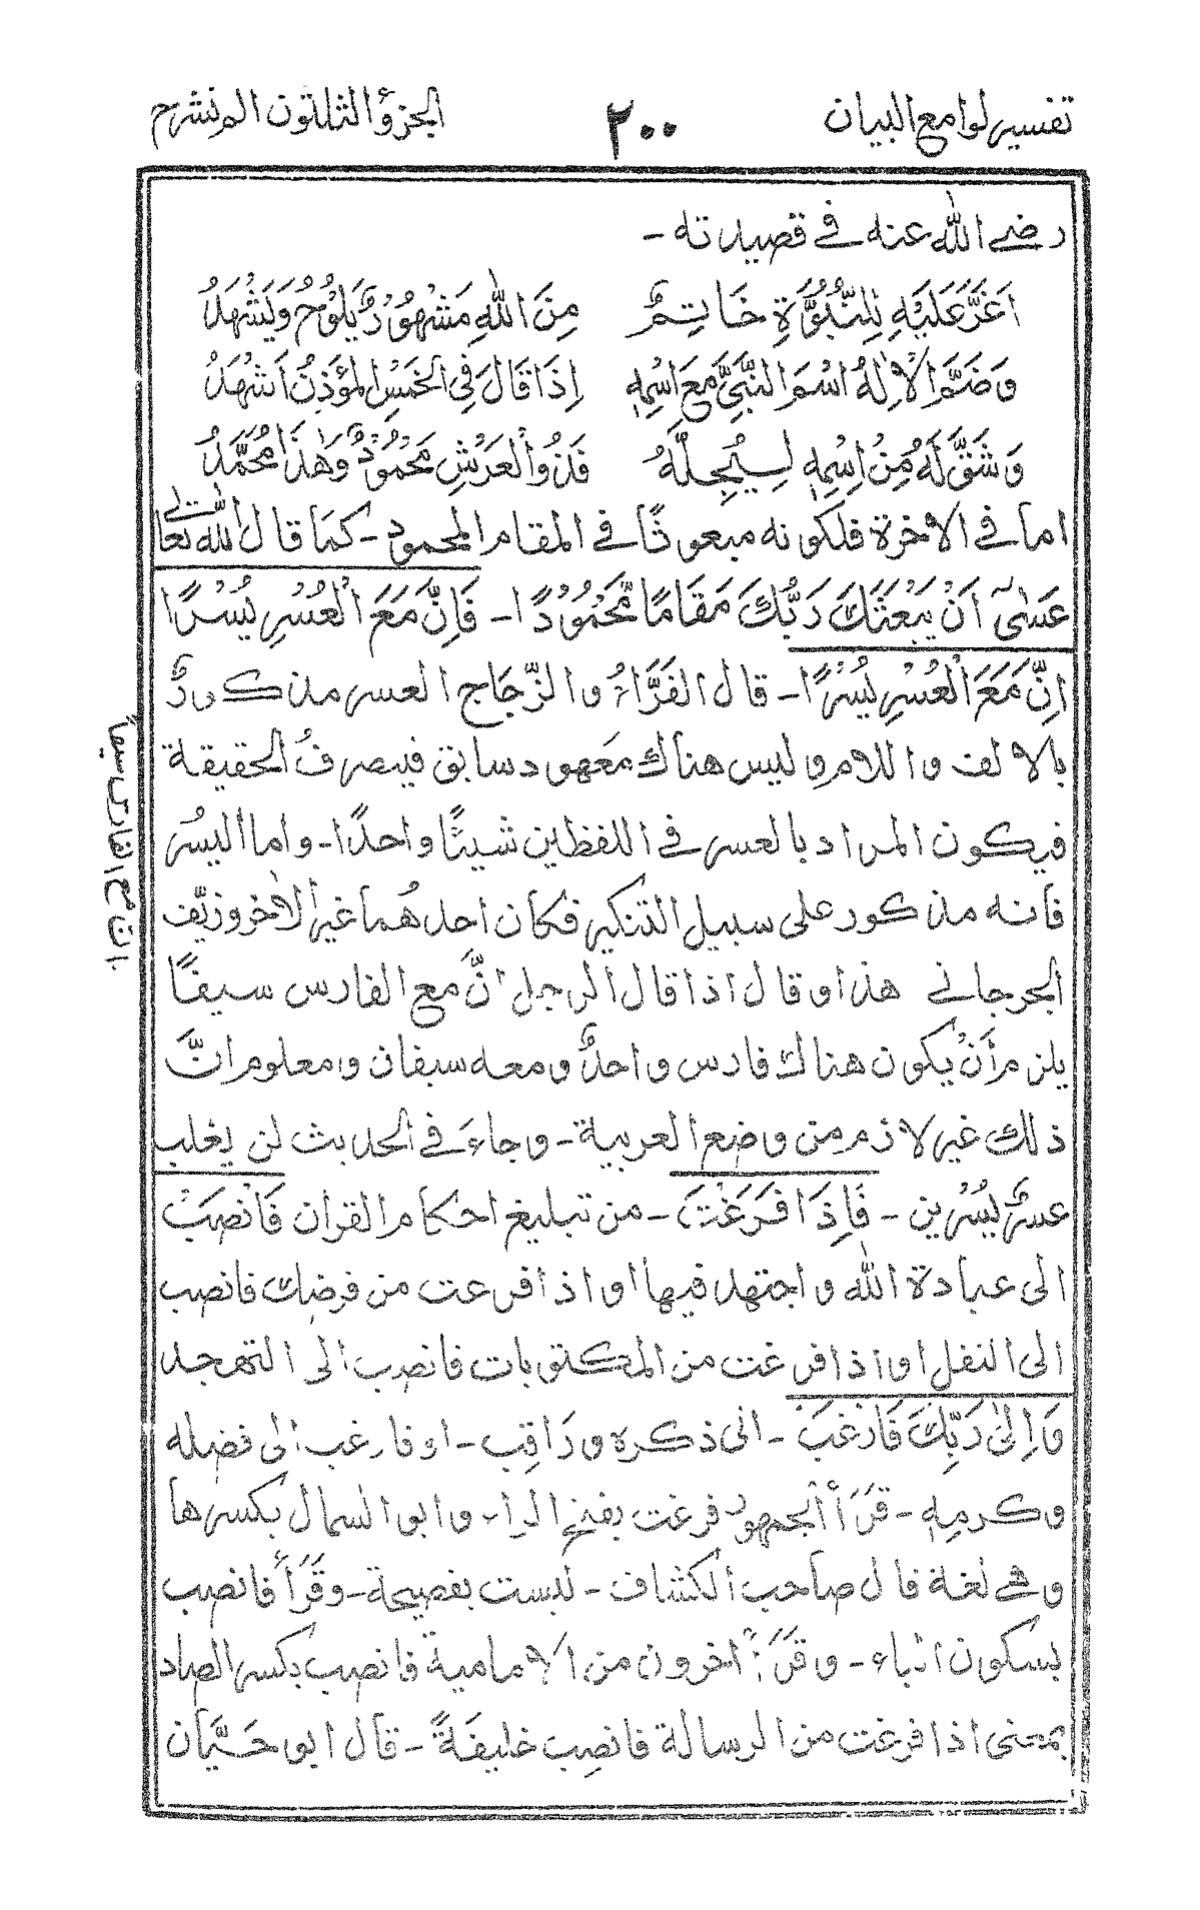 تفسير لوامع البيان ٢٠٠ الجزؤ الثلثون الم نشرح
رضي الله عنه في قصيدته -
اَغَرَّ عَلَيْهِ لِلنُّبُوَّةِ خَاتِمٌ مِنَ اللهِ مَشْهُوْدٌ يَلُوْحُ وَيَشْهَدُ
وَضَمَّ الْاِلٰهُ اسْمَ النَّبِيِّ مَعَ اسْمِهٖ اِذَا قَالَ فِى الْخَمْسِ الْمُؤَذِّنُ اَشْهَدُ
وَشَقَّ لَهٗ مِنْ اِسْمِهٖ لِيُجِلَّهٗ فَذُو الْعَرْشِ مَحْمُوْدٌ وَهٰذَا مُحَمَّدُ
اما في الاخرة فلكونه مبعوثًا في المقام المحمود - كما قال الله تعالى
عَسٰى اَنْ يَبْعَثَكَ رَبُّكَ مَقَامًا مَّحْمُوْدًا - فَاِنَّ مَعَ الْعُسْرِ يُسْرًا
اِنَّ مَعَ الْعُسْرِ يُسْرًا - قال الفَرَّاءُ والزّجَاج العسر مذكورٌ
بالالف واللام وليس هناك مَعهود سابق فيصرفُ الحقيقة
فيكون المراد بالعسر في اللفظين شيئًا واحدًا - واما اليسُر
فانه مذكور على سبيل التنكير فكان احدهُما غير الاٰخر وزيّف
الجرجاني هذا وقال اذا قال الرجل انَّ مع الفارس سيفًا
يلزم أَنْ يكون هناك فارس واحدٌ ومعه سيفان ومعلوم انَّ
ذلك غير لازم من وضع العربية - وجاءَ في الحديث لن يغلب
عسرٌ يُسْرين - فَاِذَا فَرَغْتَ - من تبليغ احكام القران فَانْصَبْ
الى عبادة الله واجتهد فيها او اذا فرغت من فرضك فانصب
الى النفل او اذا فرغت من المكتوبات فانصب الى التهجد
وَاِلٰى رَبِّكَ فَارْغَبْ - الى ذكره ورَاقِب - او فارغب الى فضله
وكرمِهٖ - قَرَأ الجمهور فرغت بفتح الراء وابو السمال بكسرها
وهي لغة قال صاحب الكشاف - ليست بفصيحة - وقَرَأَ فانصب
بسكون الباء - وقَرَأ اٰخرون من الامامية فانصِب بكسر الصاد
بمعنى اذا فرغت من الرسالة فانصِب خليفَةً - قال ابو حَيَّان
ان مع الفارس سيفاً